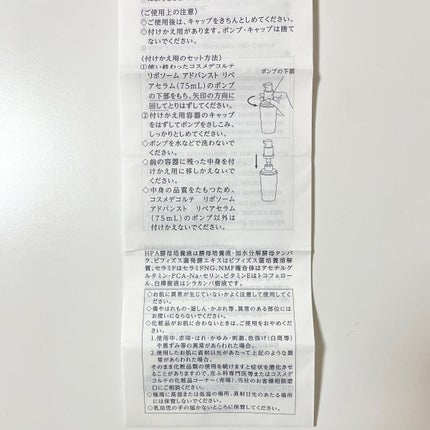 〈ご使用上の注意〉
◇ご使用後は、キャップをきちんとしめてください。
◇付けかえ用があります。ポンプ・キャップは捨て
ないでください。
〈付けかえ用のセット方法〉
①使い終わったコスメデコルテ
リポソーム アドバンスト リペ
アセラム(75mL)のポンプ
の下部をもち、矢印の方向に
回してとりはずしてください。
ポンプの下部
②付けかえ用容器のキャップ
をはずしてポンプをさしこみ、
しっかりとしめてください。
◇ポンプを水などで洗わないで
ください。
◇前の容器に残った中身を付
けかえ用に移しかえないで
ください。
◇中身の品質をたもつため、
コスメデコルテ リポソーム
アドバンスト リペアセラム
(75mL)のポンプ以外は
付けかえないでください。
HPA酵母培養液は酵母培養液・加水分解酵母タンパ
ク、ビフィズス菌発酵エキスはビフィズス菌培養溶解
質、セラミドはセラミドNG、NMF複合体はアセチルグ
ルタミン・PCA-Na・セリン、ビタミンEはトコフェロー
ル、白樺樹液はシラカンバ樹液です。
◇お肌に異常が生じていないかよく注意して使用してく
ださい。
◇傷やはれもの・湿しん・かぶれ等、異常のある部位には
お使いにならないでください。
◇化粧品がお肌に合わないときは、ご使用をおやめくだ
さい。
1.使用中、赤味・はれ・かゆみ・刺激、色抜け(白斑等)
や黒ずみ等の異常があらわれた場合。
2.使用したお肌に直射日光があたって上記のような異
常があらわれた場合。
そのまま化粧品類の使用を続けますと症状を悪化させ
ることがありますので、皮ふ科専門医等またはコスメデ
コルテの化粧品コーナー(売場)、当社のお客様相談窓
口にご相談ください。
◇極端に高温または低温の場所、直射日光のあたる場所
には保管しないでください。
◇乳幼児の手の届かないところに保管してください。